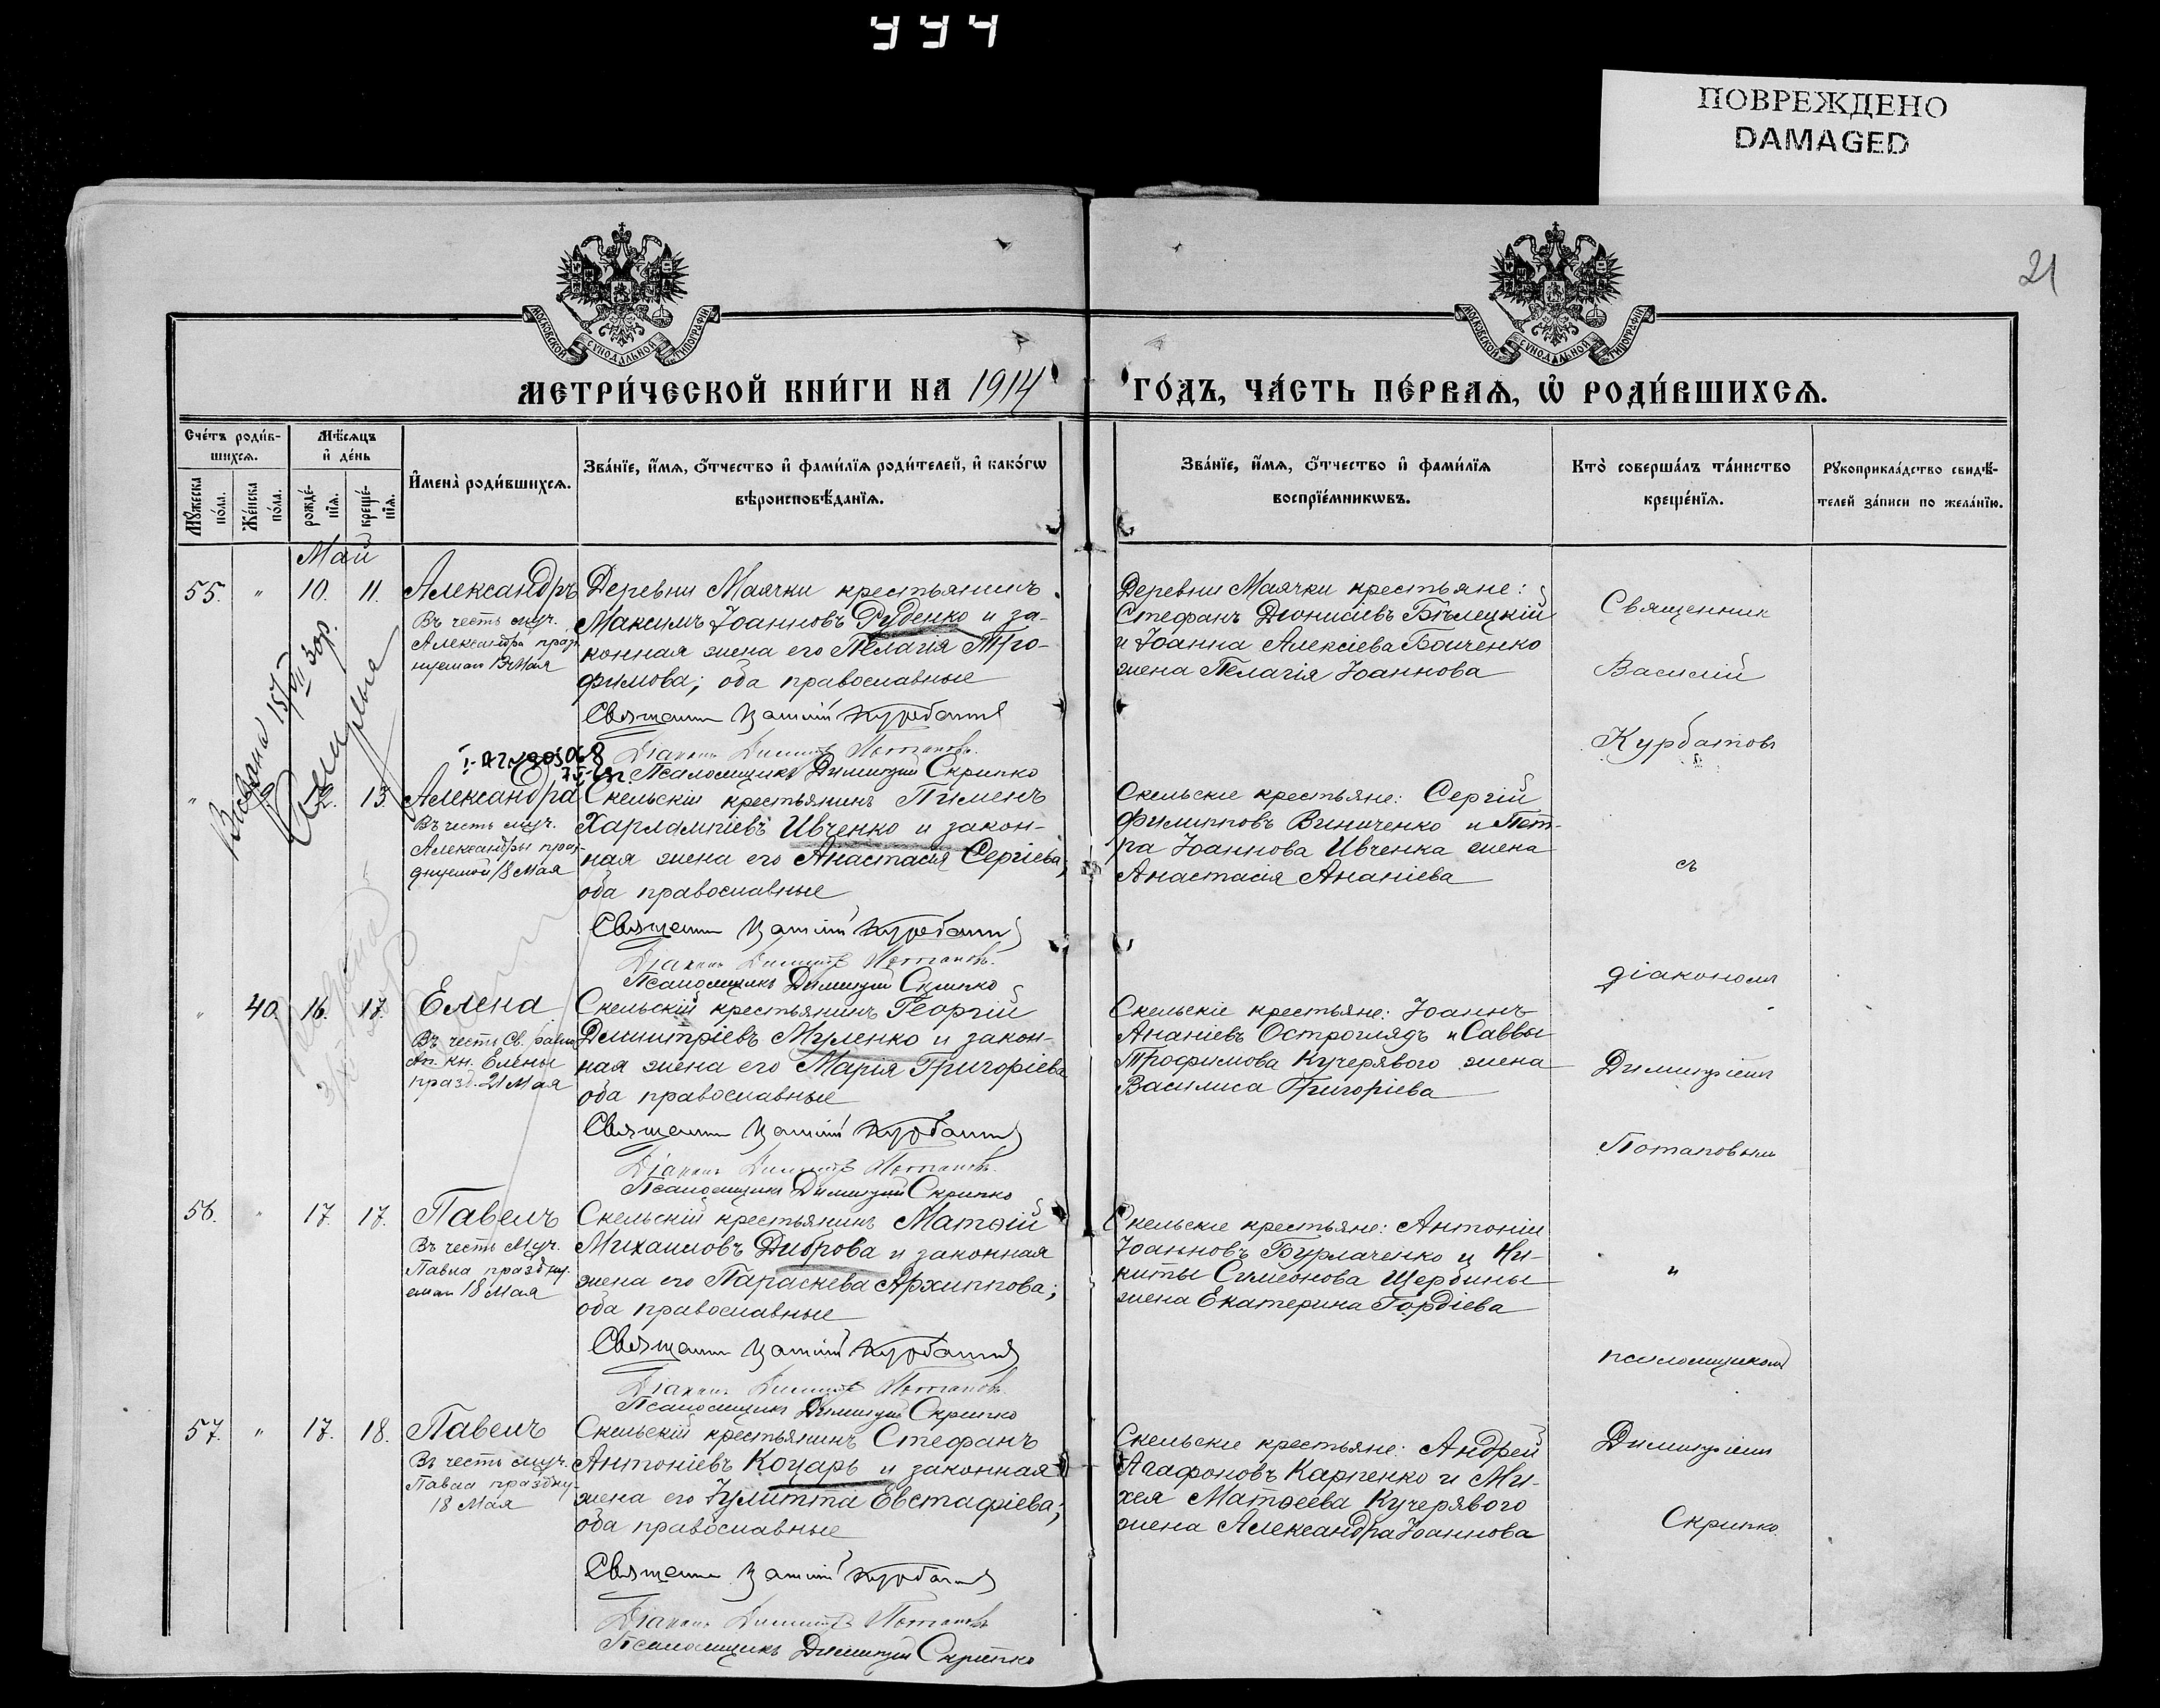 994
ПОВРЕЖДЕНО
DAMAGED
21
МОСКОВСКОЙ СѴНОДАЛЬНОЙ ТИПОГРАФІИ
МОСКОВСКОЙ СѴНОДАЛЬНОЙ ТИПОГРАФІИ
МЕТРИ́ЧЕСКОЙ КНИ́ГИ НА 1914
ГО́ДЪ, ЧА́СТЬ ПЕ́РВАѦ, Ѡ҆ РОДИ́ВШИХСѦ.
Сче́тъ роди́в-
шихсѧ.
Мѣ́сѧцъ
и҆ де́нь
Мꙋ́жеска
по́ла.
Же́нска
по́ла.
рожде́-
нїѧ.
креще́-
нїѧ.
И҆мена̀ роди́вшихсѧ.
Зва́нїе, и҆́мѧ, ѻ҆́тчество и҆ фами́лїѧ роди́телей, и҆ како́гѡ
вѣроисповѣ́данїѧ.
Зва́нїе, и҆́мѧ, ѻ҆́тчество и҆ фами́лїѧ
воспрїе́мникѡвъ.
Кто̀ соверша́лъ та́инство
креще́нїѧ.
Рꙋкоприкла́дство свидѣ́-
телей за́писи по жела́нїю.
Май
55. " 10. 11. Александръ
Въ честь муч.
Александра празд
нуемаго 13 Мая
Деревни Маячки крестьянинъ
Максимъ Іоанновъ Руденко и за-
конная жена его Пелагія Тро-
фимова; оба православные
Священникъ Василій Курбатовъ
Діаконъ Димитрій Потаповъ
Псаломщикъ Димитрій Скрипко
Деревни Маячки крестьяне:
Стефанъ Діонисіевъ Бѣлецкій
и Іоанна Алексіева Бойченко
жена Пелагія Іоаннова
" 13 Александра
Въ честь муч.
Александры празд-
днуемой 18 Мая
Скельскій крестьянинъ Пименъ
Харлампіевъ Ивченко и закон-
ная жена его Анастасія Сергіева,
оба православные
Священникъ Василій Курбатовъ
Діаконъ Димитрій Потаповъ
Псаломщикъ Димитрій Скрипко
Скельскіе крестьяне: Сергій
Филипповъ Виниченко и Пет-
ра Іоаннова Ивченка жена
Анастасія Ананіева
" 40. 16. 17. Елена
Въ честь Св. равно
Ап. кн. Елены
празд. 21 Мая
Скельскій крестьянинъ Георгій
Димитріевъ Муленко и закон-
ная жена его Марія Григоріева
оба православные
Священникъ Василій Курбатовъ
Діаконъ Димитрій Потаповъ
Псаломщикъ Димитрій Скрипко
Скельскіе крестьяне: Іоаннъ
Ананіевъ Остроглядъ и Саввы
Трофимова Кучерявого жена
Василиса Григоріева
56. " 17. 17. Павелъ
Въ честь Муч.
Павла празdну-
емаго 18 Мая
Скельскій крестьянинъ Матѳій
Михаиловъ Диброва и законная
жена его Параскева Архиппова;
оба православные
Священникъ Василій Курбатовъ
Діаконъ Димитрій Потаповъ
Псаломщикъ Димитрій Скрипко
Скельскіе крестьяне: Антоній
Іоанновъ Бурлаченко и Ни-
киты Симеонова Щербины
жена Екатерина Гордіева
57. " 17. 18. Павелъ
Въ честь муч.
Павла праздну-
18 Мая
Скельскій крестьянинъ Стефанъ
Антоніевъ Коцарь и законная
жена его Іулитта Евстафіева;
оба православные
Священникъ Василій Курбатовъ
Діаконъ Димитрій Потаповъ
Псаломщикъ Димитрій Скрипко
Скельскіе крестьяне: Андрей
Агафоновъ Карпенко и Ми-
хея Матѳеева Кучерявого
жена Александра Іоаннова
Священникъ
Василій
Курбатовъ
съ
діакономъ
Димитріемъ
Потаповымъ
и
псаломщикомъ
Димитріемъ
Скрипко